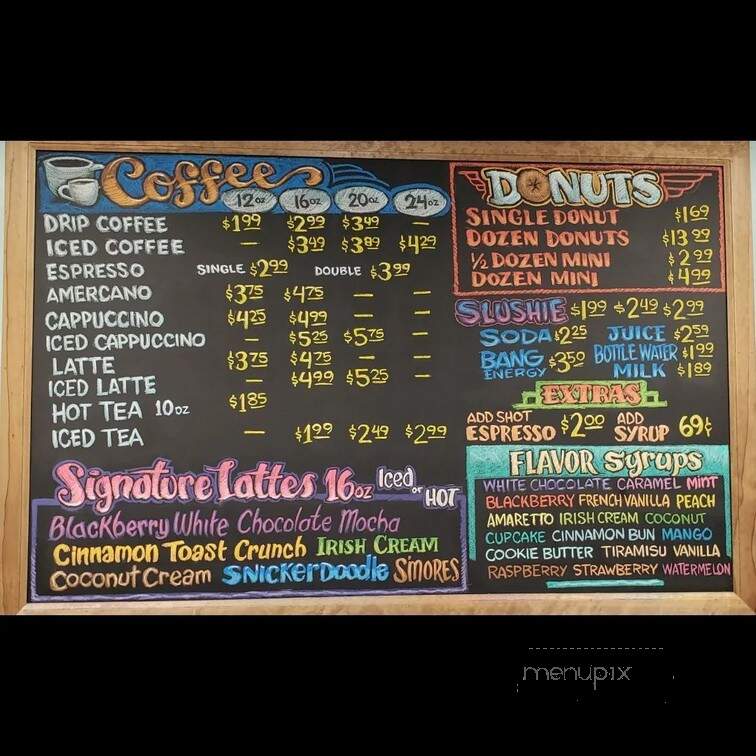 Coffee
12oz 16oz 20oz 24oz
DRIP COFFEE $1.99 $2.99 $3.49 —
ICED COFFEE — $3.49 $3.89 $4.29
ESPRESSO SINGLE $2.99 DOUBLE $3.99
AMERCANO $3.75 $4.75 — —
CAPPUCCINO $4.25 $4.99 — —
ICED CAPPUCCINO — $5.25 $5.75 —
LATTE $3.75 $4.75 — —
ICED LATTE — $4.99 $5.25 —
HOT TEA 10oz $1.85
ICED TEA — $1.99 $2.49 $2.99
Signature Lattes 16oz Iced or HOT
Blackberry White Chocolate Mocha
Cinnamon Toast Crunch IRISH CREAM
Coconut Cream SNICKERDOODLE S'MORES
DONUTS
SINGLE DONUT $1.69
DOZEN DONUTS $13.99
1/2 DOZEN MINI $2.99
DOZEN MINI $4.99
SLUSHIE $1.99 $2.49 $2.99
SODA $2.25 JUICE $2.59
BANG ENERGY $3.50 BOTTLE WATER $1.99
MILK $1.89
EXTRAS
ADD SHOT ESPRESSO $2.00 ADD SYRUP 69¢
FLAVOR Syrups
WHITE CHOCOLATE CARAMEL MINT
BLACKBERRY FRENCH VANILLA PEACH
AMARETTO IRISH CREAM COCONUT
CUPCAKE CINNAMON BUN MANGO
COOKIE BUTTER TIRAMISU VANILLA
RASPBERRY STRAWBERRY WATERMELON
menupix